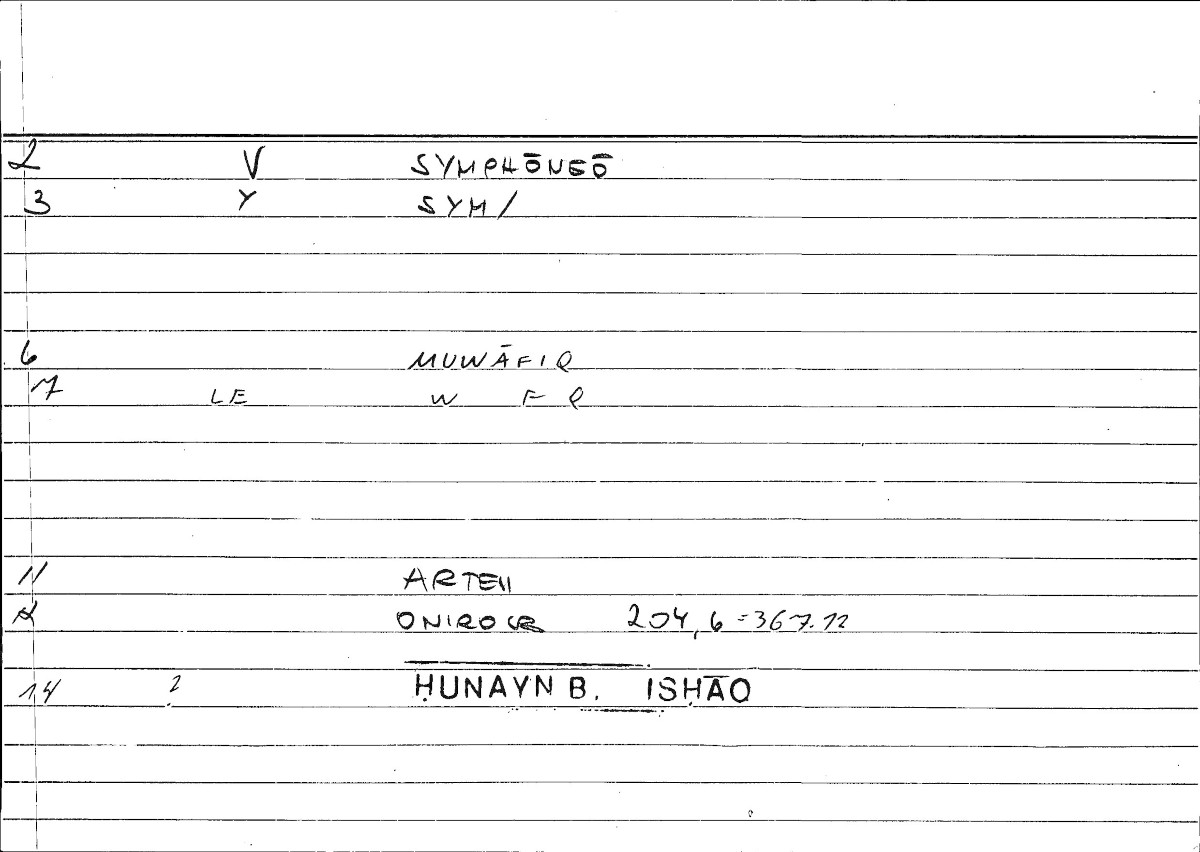 2 V SYMPHŌNEŌ
3 Y SYM/
6 MUWĀFIQ
7 LE W F Q
11 ARTEM
ONIROCR 204,6=367.12
14 2 ḤUNAYN B. ISḤĀQ